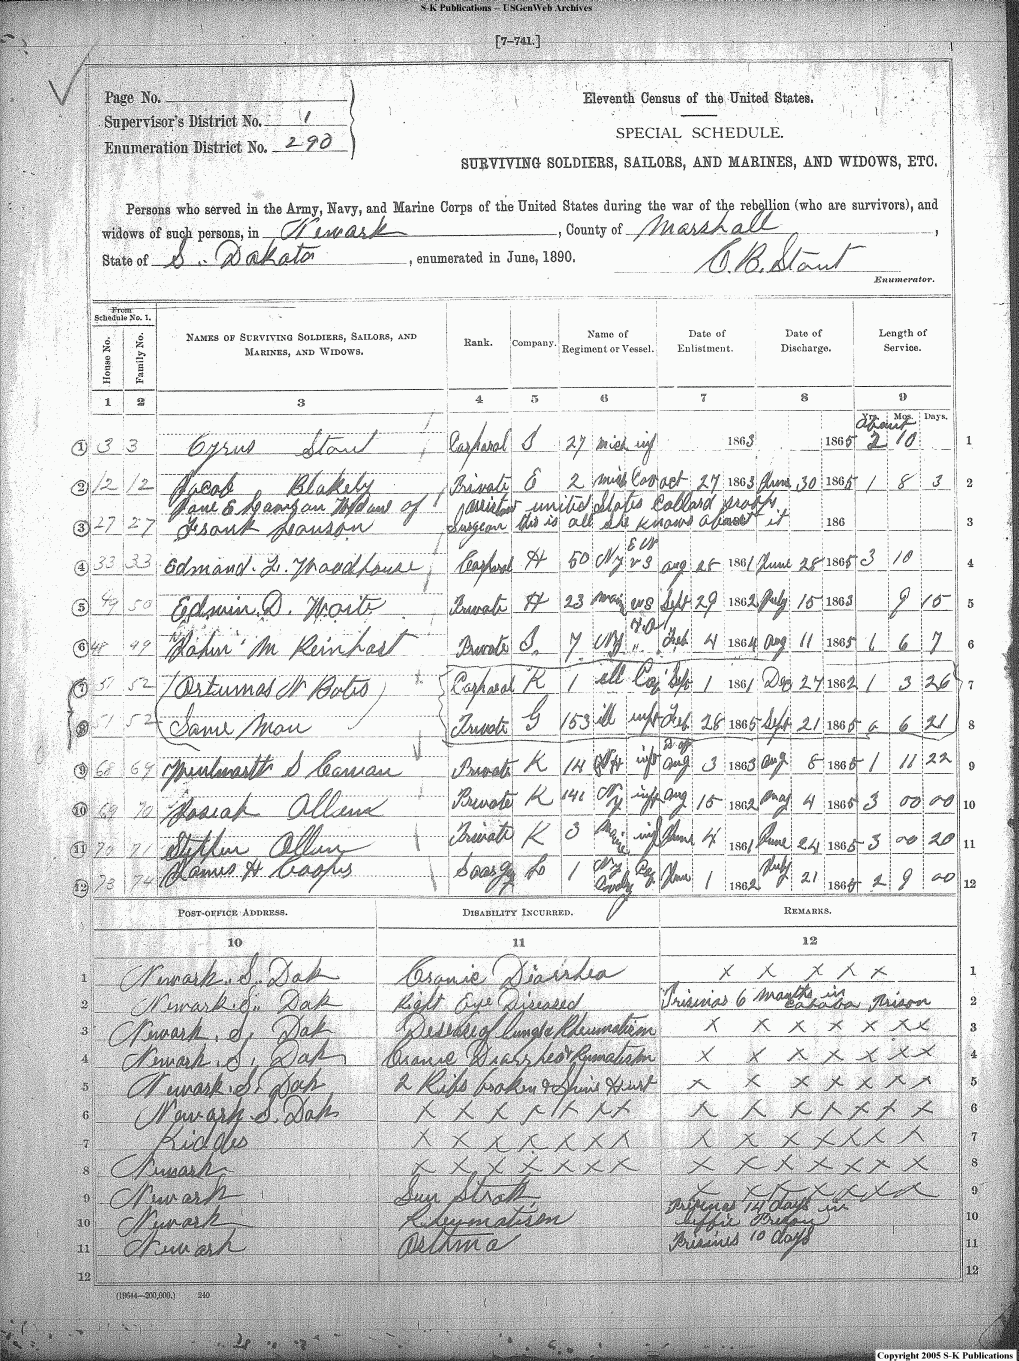 S-K Publications – USGenWeb Archives
[7–741.]
Page No.
Supervisor's District No. 1
Enumeration District No. 290
Eleventh Census of the United States.
SPECIAL SCHEDULE.
SURVIVING SOLDIERS, SAILORS, AND MARINES, AND WIDOWS, ETC.
Persons who served in the Army, Navy, and Marine Corps of the United States during the war of the rebellion (who are survivors), and
widows of such persons, in Newark, County of Marshall,
State of S. Dakota, enumerated in June, 1890. C. B. Stout
Enumerator.
From Schedule No. 1.
House No. Family No. NAMES OF SURVIVING SOLDIERS, SAILORS, AND MARINES, AND WIDOWS. Rank. Company. Name of Regiment or Vessel. Date of Enlistment. Date of Discharge. Length of Service.
1 2 3 4 5 6 7 8 9
Yrs. Mos. Days.
about
1 3 3 Cyrus Stout Corporal 27 mich inf 1863 1865 2 10 1
2 12 12 Jacob Blakeby Private E 2 mich Cav oct 27 1863 June 30 1865 1 8 3 2
Jane E Widows of assistant united States Collard
3 27 27 Frank Surgeon this is all she knows about it 186 3
4 33 33 Edmand. L. Woodhouse Corporal H 50 Ny aug 28 1861 June 28 1865 3 10 4
5 49 50 Edwin D. Waite Private H 23 Sept 29 1862 July 15 1863 9 15 5
6 48 49 M Reinhast Private 7 Ny Feb 4 1864 aug 11 1865 1 6 7 6
7 51 52 Artumas N Bates Corporal K 1 ill Cav Sept 1 1861 Dec 27 1862 1 3 26 7
8 51 52 Same Man Private G 153 ill inft Feb 28 1865 Sept 21 1865 0 6 21 8
9 68 69 S Private K 14 inf aug 3 1863 aug 8 1865 1 11 22 9
10 69 70 Josiah Allen Private K 141 Ny inft aug 15 1862 may 4 1865 3 00 00 10
11 70 71 Stephen Allen Private K 3 inf June 4 1861 June 24 1865 3 00 20 11
12 73 74 James H Coops L 1 Ny Cav 1 1862 July 21 1865 2 9 00 12
POST-OFFICE ADDRESS. DISABILITY INCURRED. REMARKS.
10 11 12
1 Newark. S. Dak Cronic Diarrhea x x x x x 1
2 Newark. S. Dak Right Eye Diseased Prisinas 6 months in Cahaba Prison 2
3 Newark. S, Dak Disease of lungs & Rheumatism x x x x x x 3
4 Newark. S, Dak Cronic Diarrhea & Rumatism x x x x x x 4
5 Newark. S. Dak 2 Ribs broken & Spine Hurt x x x x x x 5
6 Newark S. Dak x x x x x x x x x x x x x x 6
7 Kidder x x x x x x x x x x x x x x 7
8 Newark x x x x x x x x x x x x x x 8
9 Newark Sun Strok x x x x x x x 9
10 Newark Rheumatism Prisinas 14 days in Prison 10
11 Newark Asthma Prisines 10 days 11
12 12
(19644—200,000.) 240
Copyright 2005 S-K Publications